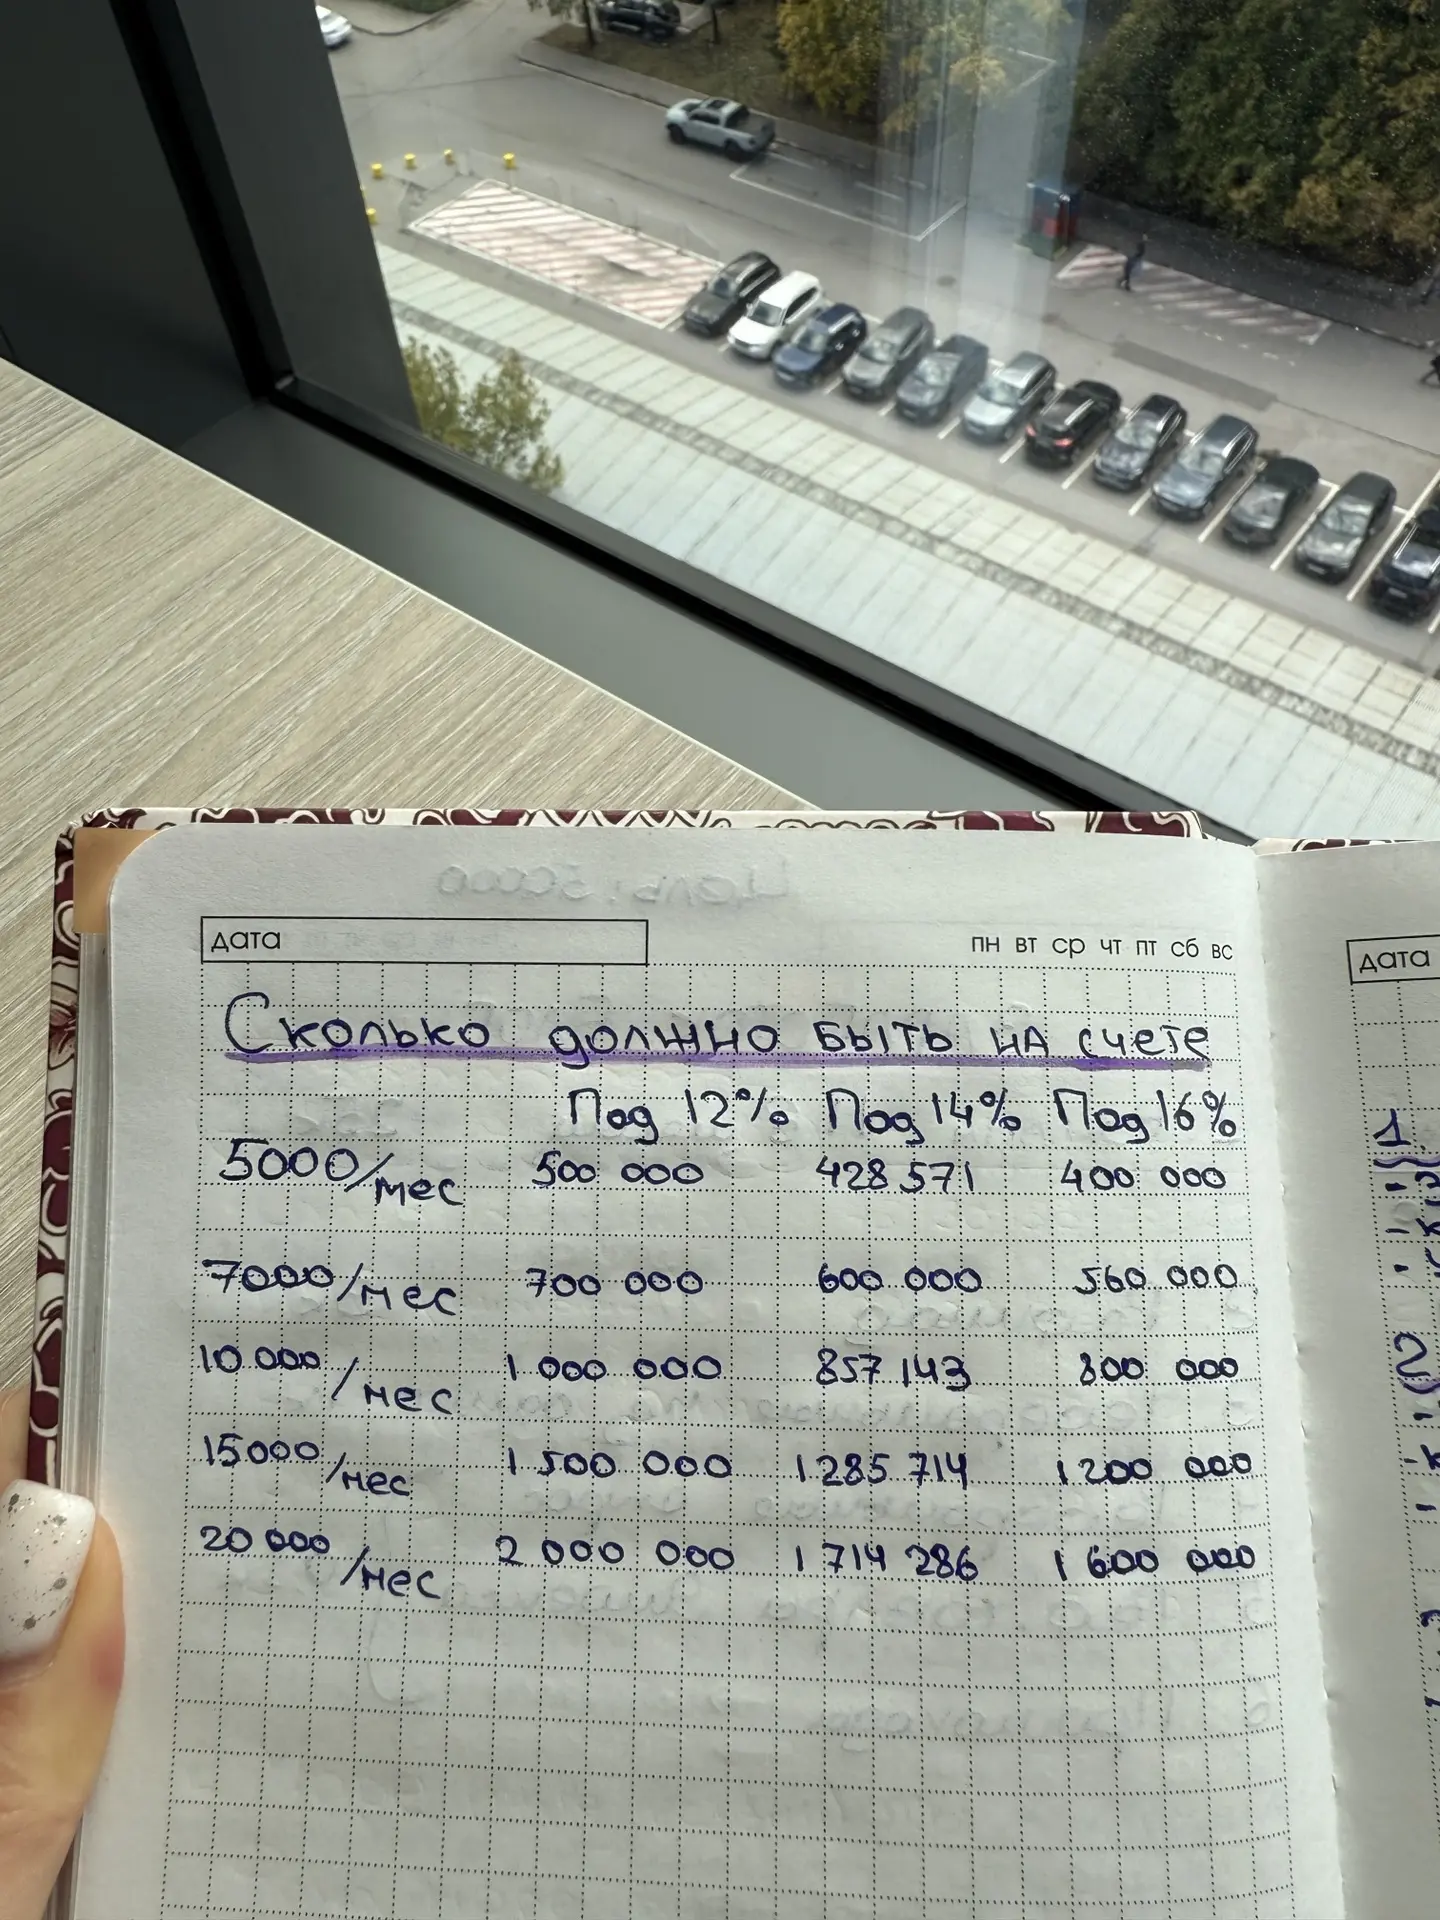 дата
пн вт ср чт пт сб вс
Сколько должно быть на счете
Под 12% Под 14% Под 16%
5000/мес 500 000 428 571 400 000
7000/мес 700 000 600 000 560 000
10 000/мес 1 000 000 857 143 800 000
15000/мес 1 500 000 1 285 714 1 200 000
20 000/мес 2 000 000 1 714 286 1 600 000
дата
1
2